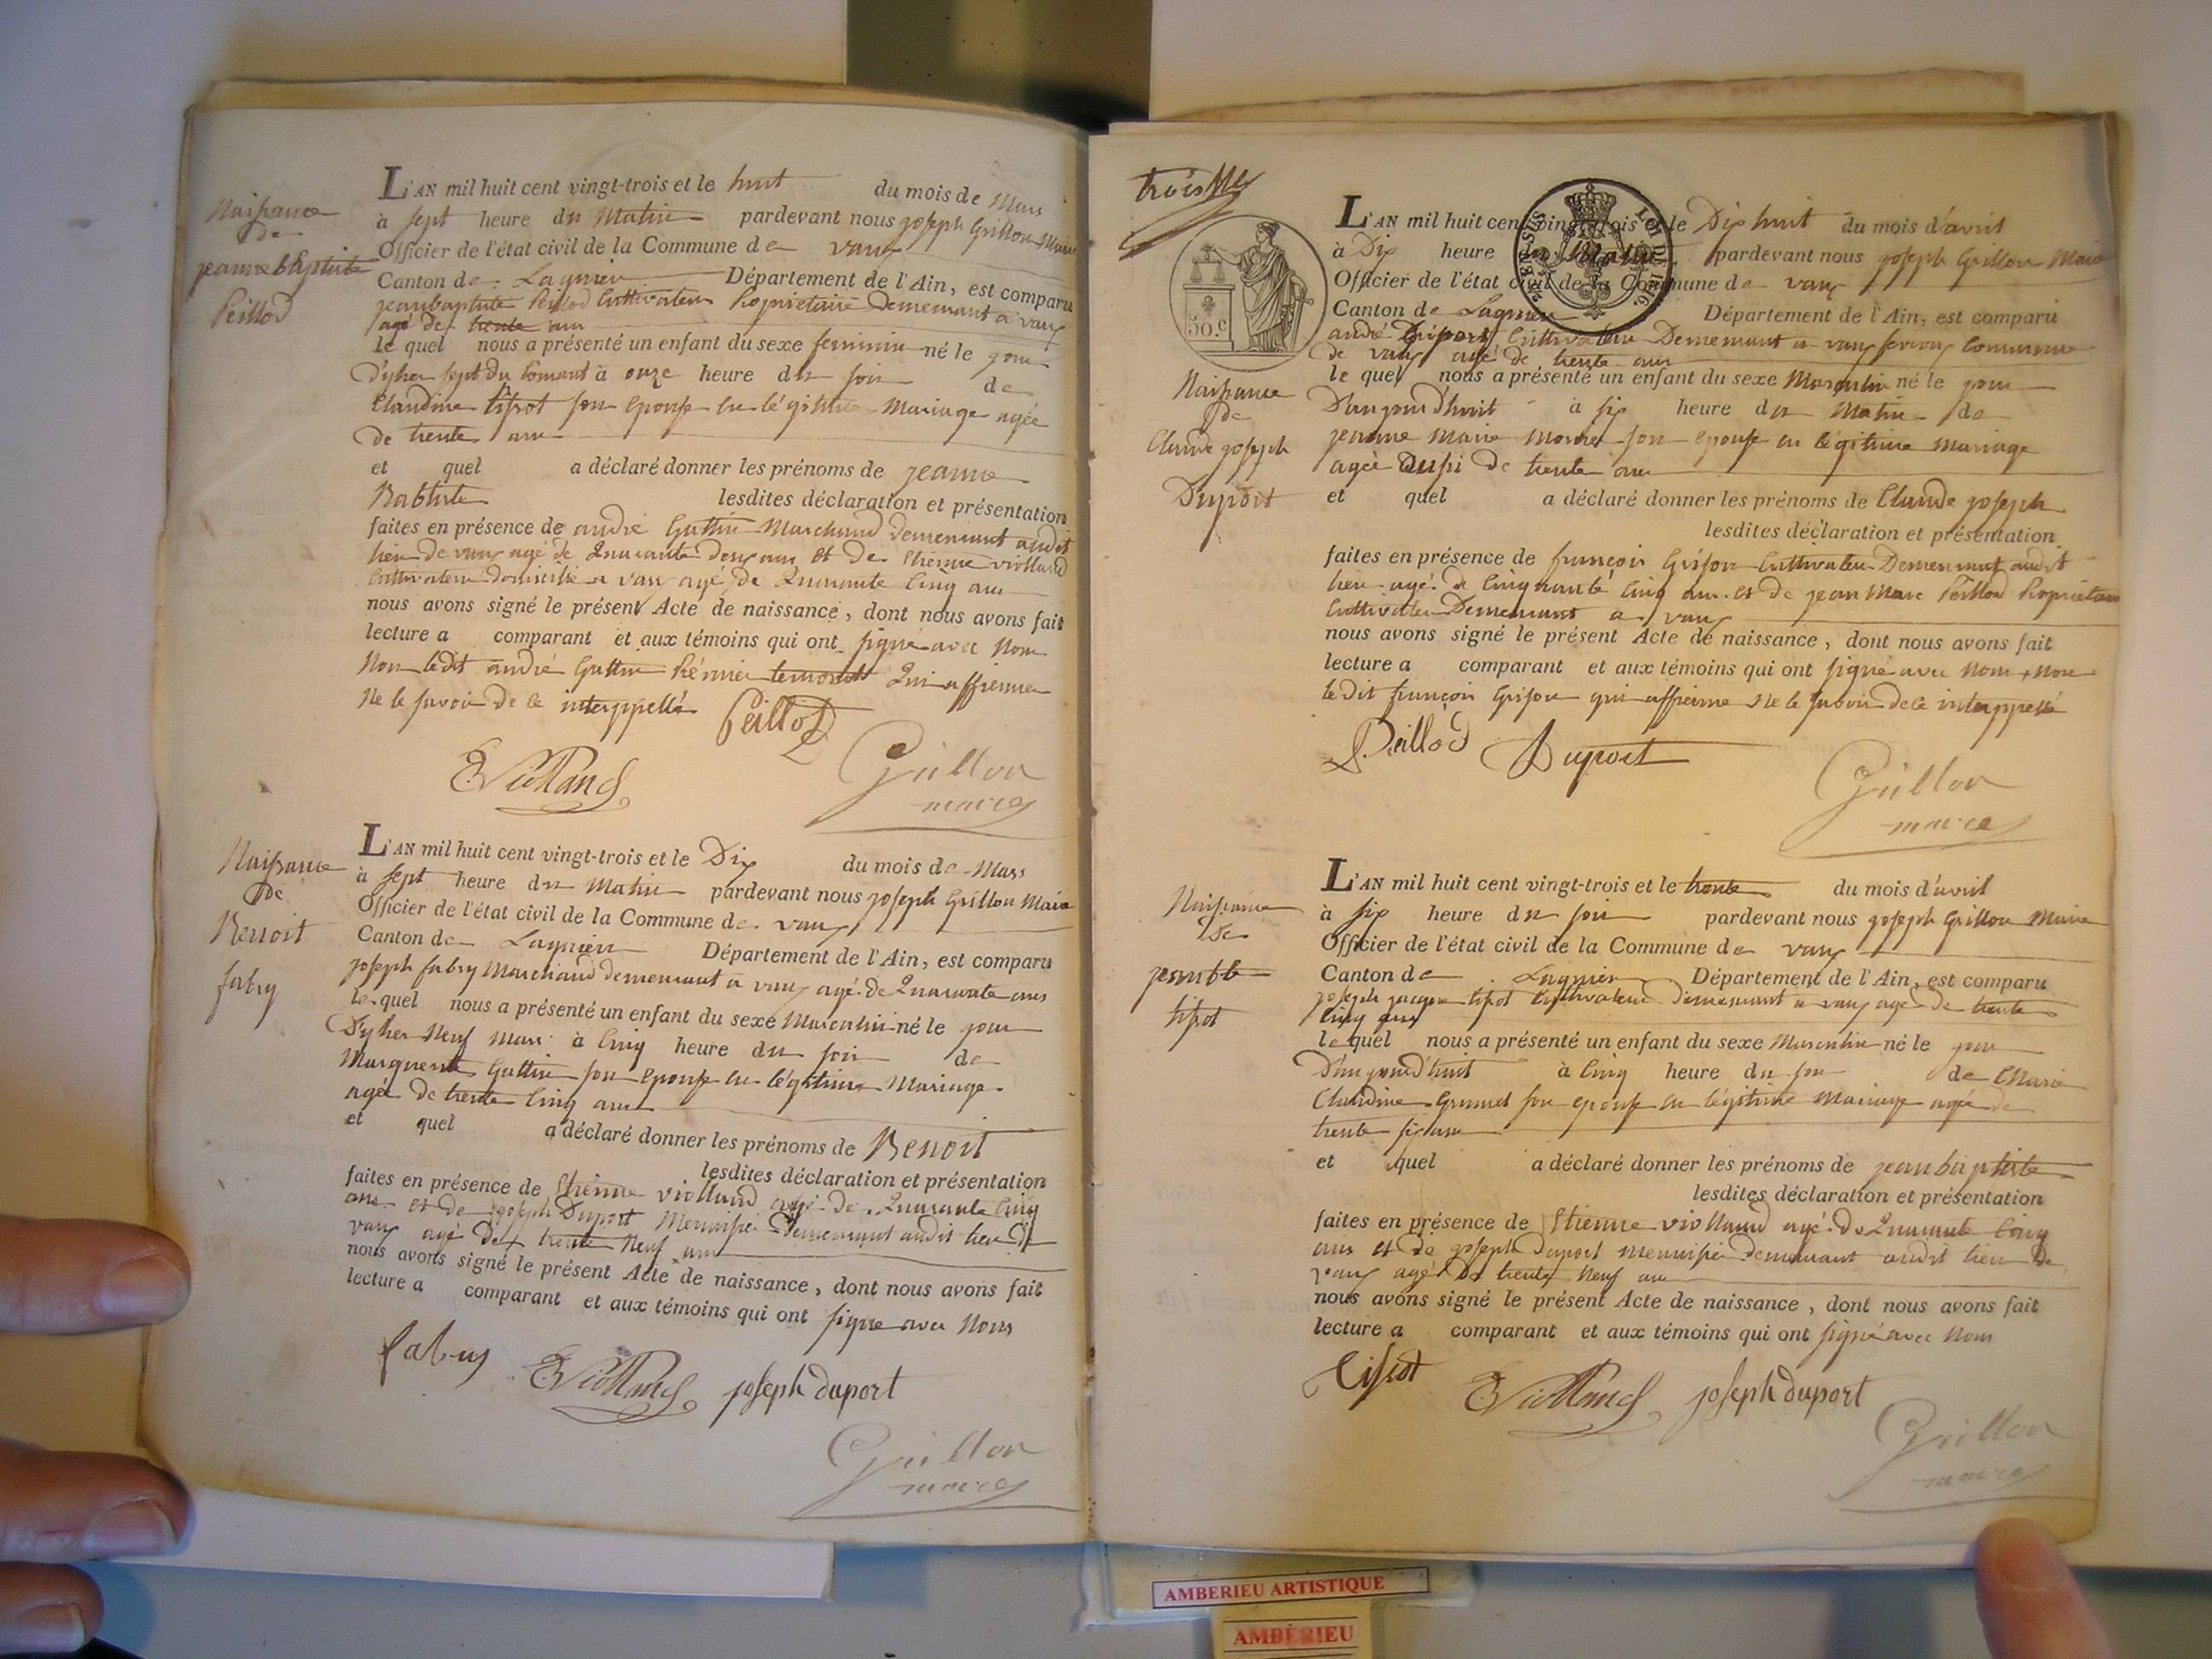 Naissance
de
jeanne bAptiste
Peillod
L'AN mil huit cent vingt-trois et le huit du mois de Mars
à sept heure du Matin pardevant nous joseph Grillon Maire
Officier de l'état civil de la Commune de vaux
Canton de Lagnieu Département de l'Ain, est comparu
jeanbaptiste Peillod Cultivateur Propriétaire Demeurant a vaux
agé de trente ans
le quel nous a présenté un enfant du sexe feminin né le jour
D'yher sept du Courant à onze heure du soir de
Claudine tissot son epouse en légitime Mariage agée
de trente ans
et quel a déclaré donner les prénoms de jeanne
Babtiste lesdites déclaration et présentation
faites en présence de andré Guttin Marchand Demeurant audit
lieu de vaux agé de Quarante deux ans et de Etienne violland
Cultivateur domicilié a vaux agé de Quarante Cinq ans
nous avons signé le présent Acte de naissance, dont nous avons fait
lecture a comparant et aux témoins qui ont signé avec Nous
Non ledit andré Guttin Prémier temoint Qui affirme
Ne le savoir de ce interppellé
Peillod
E Violland
Grillon
maire
Naissance
de
Benoit
fabry
L'AN mil huit cent vingt-trois et le Dix du mois de Mars
à sept heure du Matin pardevant nous joseph Grillon Maire
Officier de l'état civil de la Commune de vaux
Canton de Lagnieu Département de l'Ain, est comparu
joseph fabry Marchand demeurant a vaux agé de Quarante ans
le quel nous a présenté un enfant du sexe Masculin né le jour
D'yher Neuf Mars à Cinq heure du soir de
Marguerite Guttin son epouse en légitime Mariage
agée de trente Cinq ans
et quel a déclaré donner les prénoms de Benoit
lesdites déclaration et présentation
faites en présence de Etienne viollaud agé de Quarante Cinq
ans et de joseph Duport Menuisié Demeurant audit lieu de
vaux agé de trente Neuf ans
nous avons signé le présent Acte de naissance, dont nous avons fait
lecture a comparant et aux témoins qui ont signé avec Nous
fabry
E Violland
joseph duport
Grillon
maire
trois
50.c
LOI DE 1816.
Naissance
de
Claude joseph
Duport
L'AN mil huit cent vingt-trois et le Dix huit du mois d'avril
à Dix heure du Matin pardevant nous joseph Grillon Maire
Officier de l'état civil de la Commune de vaux
Canton de Lagnieu Département de l'Ain, est comparu
andré Duport Cultivateur Demeurant a vaux Commune
de vaux agé de trente ans
le quel nous a présenté un enfant du sexe Masculin né le jour
D'aujourd'huit à six heure du Matin de
jeanne Marie son epouse en légitime Mariage
agée aussi de trente ans
et quel a déclaré donner les prénoms de Claude joseph
lesdites déclaration et présentation
faites en présence de françois Grison Cultivateur Demeurant audit
lieu agé de Cinquante Cinq ans et de jean Marc Peillod Propriétaire
Cultivateur Demeurant a vaux
nous avons signé le présent Acte de naissance, dont nous avons fait
lecture a comparant et aux témoins qui ont signé avec Nous Non
le dit françois Grison qui affirme Ne le savoir de ce interppellé
Peillod
Duport
Grillon
maire
Naissance
de
jean bte
tissot
L'AN mil huit cent vingt-trois et le trente du mois d'avril
à six heure du soir pardevant nous joseph Grillon Maire
Officier de l'état civil de la Commune de vaux
Canton de Lagnieu Département de l'Ain, est comparu
joseph jacque tissot Cultivateur demeurant a vaux agé de trente
Cinq ans
le quel nous a présenté un enfant du sexe Masculin né le jour
D'aujourd'huit à Cinq heure du soir de Marie
Claudine Grumel son epouse en légitime Mariage agée de
trente six ans
et quel a déclaré donner les prénoms de jean baptiste
lesdites déclaration et présentation
faites en présence de Etienne viollaud agé de Quarante Cinq
ans et de joseph duport menuisié demeurant audit lieu de
vaux agé de trente Neuf ans
nous avons signé le présent Acte de naissance, dont nous avons fait
lecture a comparant et aux témoins qui ont signé avec Nous
Tissot
E Violland
joseph duport
Grillon
maire
AMBERIEU ARTISTIQUE
AMBÉRIEU